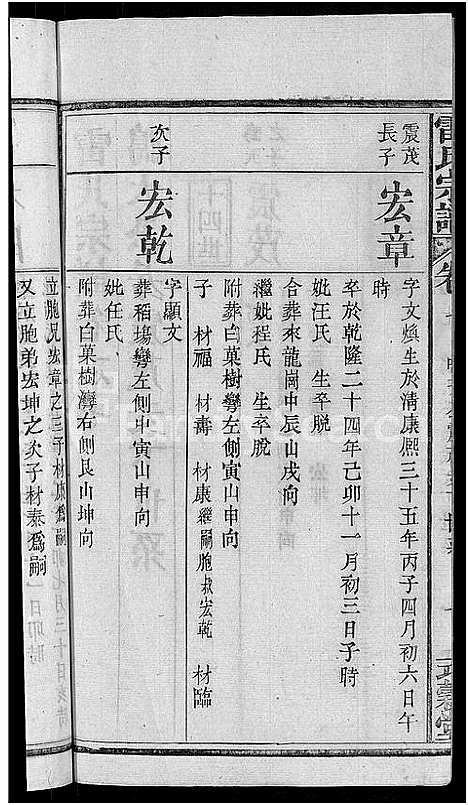 雷氏宗譜
震茂
長子
宏章
字文煥生於清康熙三十五年丙子四月初六日午
時
卒於乾隆二十四年己卯十一月初三日子時
妣汪氏 生卒脫
合葬來龍崗中辰山戌向
繼妣程氏 生卒脫
附葬白菓樹灣左側寅山申向
子 材福 材壽 材康繼嗣胞叔宏乾 材臨
次子
宏乾
字顯文
葬稻場灣左側中寅山申向
妣任氏
附葬白菓樹灣右側艮山坤向
立胞兄宏章之三子材康爲嗣
又立胞弟宏坤之次子材泰爲嗣